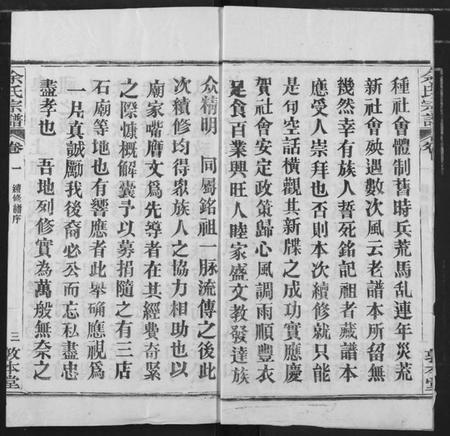 種社會體制舊時兵荒馬亂連年災荒
新社會殃遇數次風云老譜本所留無
幾然幸有族人誓死銘記祖者藏譜本
應受人崇拜也否則本次續修就只能
是句空話橫觀其新牒之成功實應慶
賀社會安定政策歸心風調雨順豐衣
足食百業興旺人睦家盛文教發達族
众精明 同屬銘祖一脉流傳之後此
次續修均得眾族人之協力相助也以
廟家嘴曆文為先導者在其經費奇緊
之際慷概解囊予以募捐隨之有三店
石廟等地也有響應者此舉确應視爲
一片真誠勵我後裔必公而忘私盡忠
盡孝也 吾地列修實為萬般無奈之
余氏宗譜
卷一
續修譜序
三
敦本堂
余氏宗譜
敦本堂